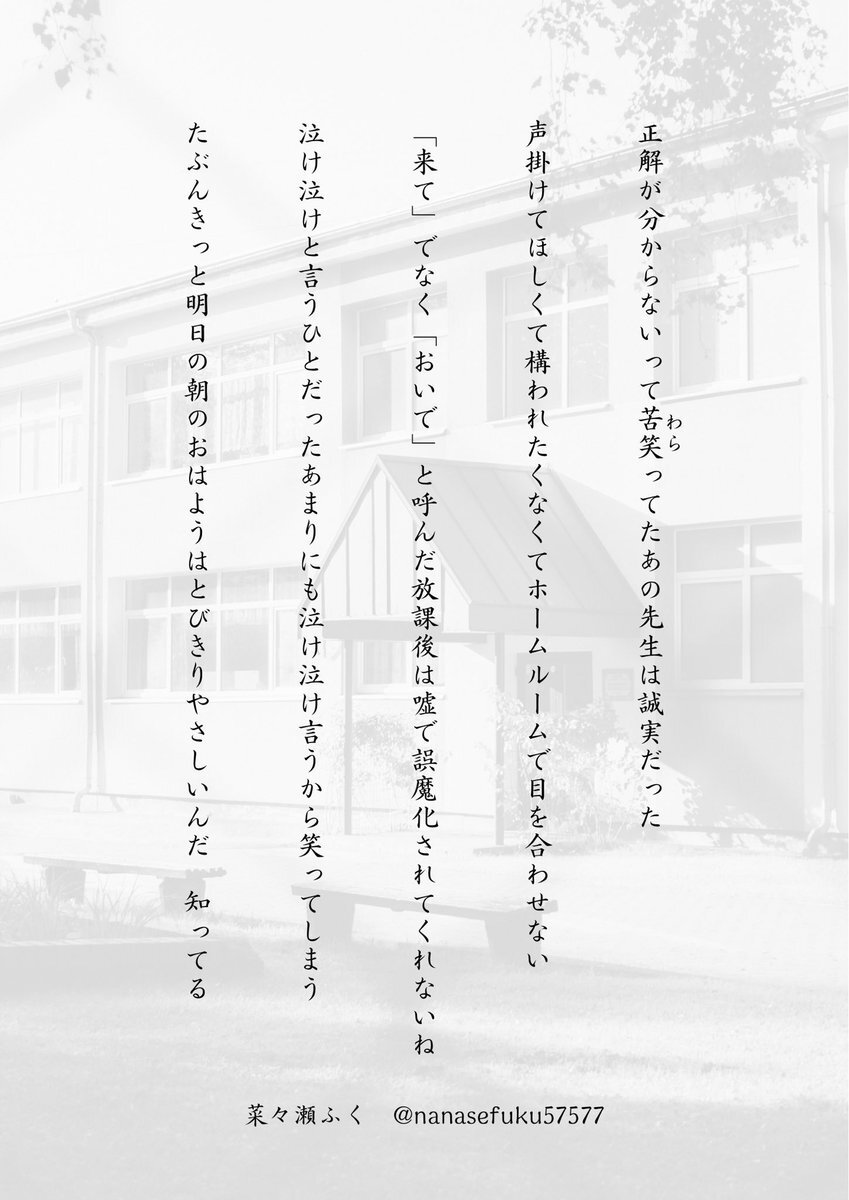 正解が分からないって苦笑ってたあの先生は誠実だった
わら
声掛けてほしくて構われたくなくてホームルームで目を合わせない
「来て」でなく「おいで」と呼んだ放課後は嘘で誤魔化されてくれないね
泣け泣けと言うひとだったあまりにも泣け泣け言うから笑ってしまう
たぶんきっと明日の朝のおはようはとびきりやさしいんだ　知ってる
菜々瀬ふく　@nanasefuku57577